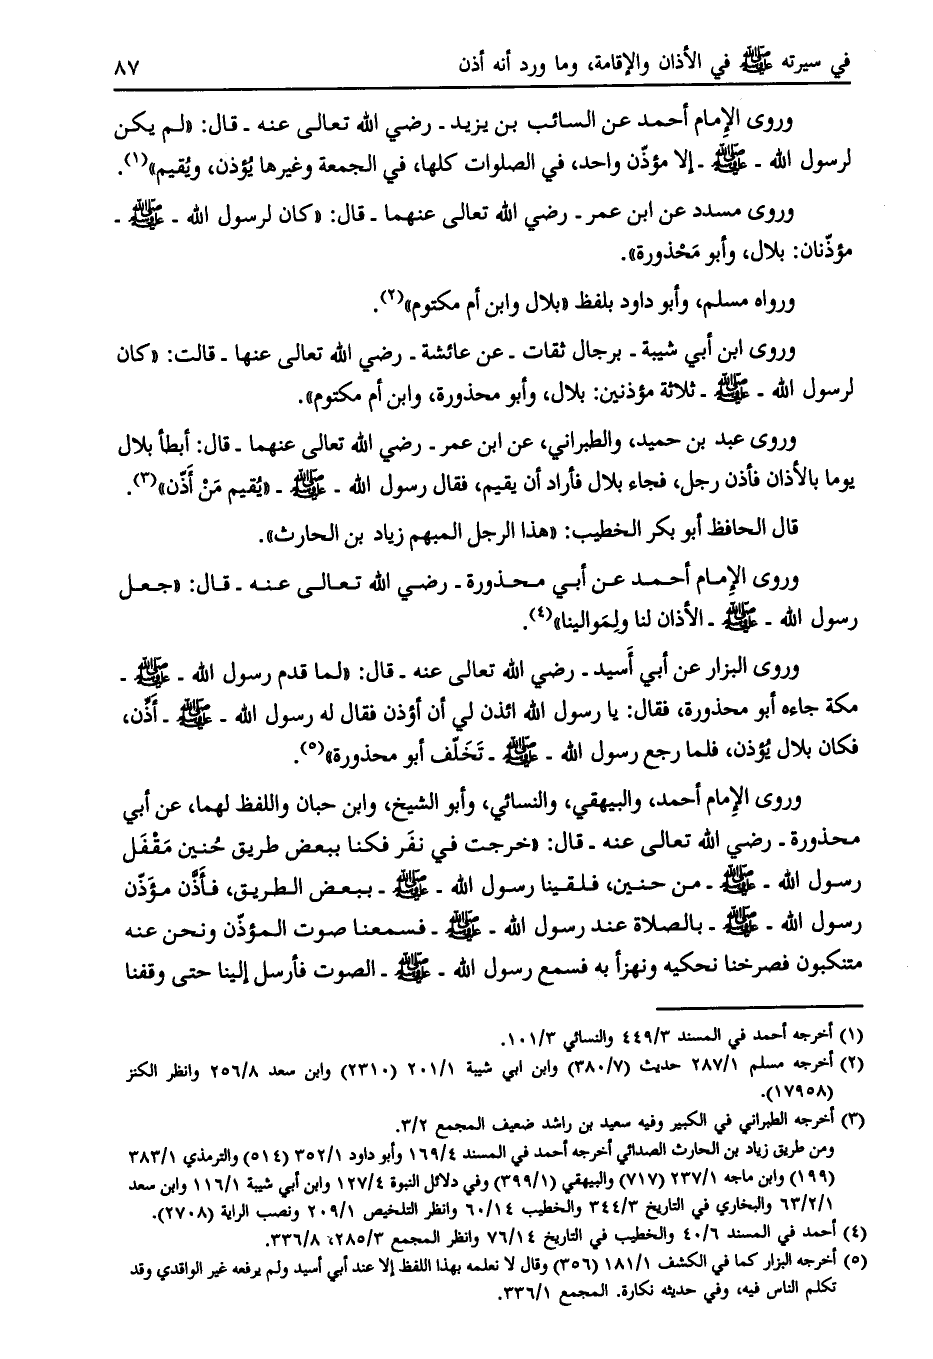 في سيرته ﷺ في الأذان والإقامة، وما ورد أنه أذن ٨٧
وروى الإمام أحمد عن السائب بن يزيد ـ رضي الله تعالى عنه ـ قال: «لم يكن
لرسول الله ـ ﷺ ـ إلا مؤذّن واحد، في الصلوات كلها، في الجمعة وغيرها يُؤذن، ويُقيم»(١).
وروى مسدد عن ابن عمر ـ رضي الله تعالى عنهما ـ قال: «كان لرسول الله ـ ﷺ ـ
مؤذّنان: بلال، وأبو مَحْذورة».
ورواه مسلم، وأبو داود بلفظ «بلال وابن أم مكتوم»(٢).
وروى ابن أبي شيبة ـ برجال ثقات ـ عن عائشة ـ رضي الله تعالى عنها ـ قالت: «كان
لرسول الله ـ ﷺ ـ ثلاثة مؤذنين: بلال، وأبو محذورة، وابن أم مكتوم».
وروى عبد بن حميد، والطبراني، عن ابن عمر ـ رضي الله تعالى عنهما ـ قال: أبطأ بلال
يوما بالأذان فأذن رجل، فجاء بلال فأراد أن يقيم، فقال رسول الله ـ ﷺ ـ «يُقيم مَنْ أَذّن»(٣).
قال الحافظ أبو بكر الخطيب: «هذا الرجل المبهم زياد بن الحارث».
وروى الإمام أحمد عن أبي محذورة ـ رضي الله تعالى عنه ـ قال: «جعل
رسول الله ـ ﷺ ـ الأذان لنا ولِمَوالينا»(٤).
وروى البزار عن أبي أَسيد ـ رضي الله تعالى عنه ـ قال: «لما قدم رسول الله ـ ﷺ ـ
مكة جاءه أبو محذورة، فقال: يا رسول الله ائذن لي أن أؤذن فقال له رسول الله ـ ﷺ ـ أَذِّن،
فكان بلال يُؤذن، فلما رجع رسول الله ـ ﷺ ـ تَخَلّف أبو محذورة»(٥).
وروى الإمام أحمد، والبيهقي، والنسائي، وأبو الشيخ، وابن حبان واللفظ لهما، عن أبي
محذورة ـ رضي الله تعالى عنه ـ قال: «خرجت في نفَر فكنا ببعض طريق حُنين مَقْفَل
رسول الله ـ ﷺ ـ من حنين، فلقينا رسول الله ـ ﷺ ـ ببعض الطريق، فأَذَّن مؤذّن
رسول الله ـ ﷺ ـ بالصلاة عند رسول الله ـ ﷺ ـ فسمعنا صوت المؤذّن ونحن عنه
متنكبون فصرخنا نحكيه ونهزأ به فسمع رسول الله ـ ﷺ ـ الصوت فأرسل إلينا حتى وقفنا
(١) أخرجه أحمد في المسند ٤٤٩/٣ والنسائي ١٠١/٣.
(٢) أخرجه مسلم ٢٨٧/١ حديث (٣٨٠/٧) وابن ابي شيبة ٢٠١/١ (٢٣١٠) وابن سعد ٢٥٦/٨ وانظر الكنز
(١٧٩٥٨).
(٣) أخرجه الطبراني في الكبير وفيه سعيد بن راشد ضعيف المجمع ٣/٢.
ومن طريق زياد بن الحارث الصدائي أخرجه أحمد في المسند ١٦٩/٤ وأبو داود ٣٥٢/١ (٥١٤) والترمذي ٣٨٣/١
(١٩٩) وابن ماجه ٢٣٧/١ (٧١٧) والبيهقي (٣٩٩/١) وفي دلائل النبوة ١٢٧/٤ وابن أبي شيبة ١١٦/١ وابن سعد
٦٣/٢/١ والبخاري في التاريخ ٣٤٤/٣ والخطيب ٦٠/١٤ وانظر التلخيص ٢٠٩/١ ونصب الراية (٢٧٠٨).
(٤) أحمد في المسند ٤٠/٦ والخطيب في التاريخ ٧٦/١٤ وانظر المجمع ٢٨٥/٣، ٣٣٦/٨.
(٥) أخرجه البزار كما في الكشف ١٨١/١ (٣٥٦) وقال لا نعلمه بهذا اللفظ إلا عند أبي أسيد ولم يرفعه غير الواقدي وقد
تكلم الناس فيه، وفي حديثه نكارة. المجمع ٣٣٦/١.